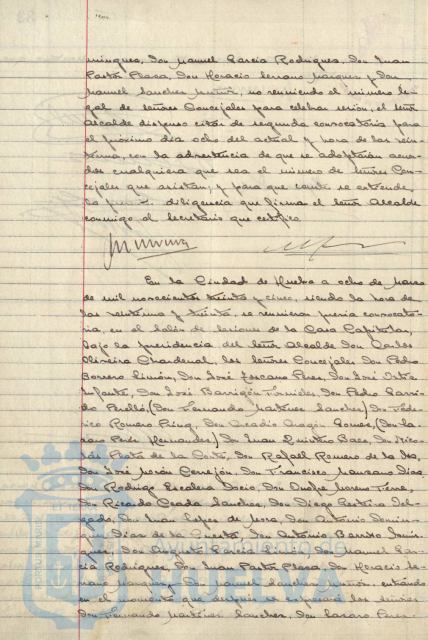 minguez, Don Manuel García Rodriguez, Don Juan
Pastor Plasa, Don Horacio Serrano Marquez y Don
Manuel Sanchez Muñiz, no reuniendo el número le-
gal de Señores Concejales para celebrar sesión, el Señor
Alcalde dispuso citar de segunda convocatoria para
el próximo día ocho del actual y hora de las vein-
tiuna, con la advertencia de que se adoptarán acuer-
dos cualquiera que sea el número de Señores Con-
cejales que asistan; y para que conste se extiende
la diligencia que firma el Señor Alcalde
conmigo el Secretario que certifico.
En la Ciudad de Huelva a ocho de Marzo
de mil novecientos treinta y cinco, siendo la hora de
las veintiuna y treinta, se reunieron previa convocato-
ria, en el Salón de Sesiones de la Casa Capitular,
bajo la presidencia del Señor Alcalde Don Carlos
Oliveira Chardenal, los Señores Concejales Don Pedro
Borrero Limón, Don José Toscano Perez, Don José Ortiz
Infante, Don José Barrigón Don Pedro Garri-
do Perelló, (Don Fernando Martinez Sanchez) Don Fede-
rico Romero Don Acadio Aragón Gomez, (Don La-
zaro Perez Hernandez) Don Juan Quintero Baez, Don Nico-
lás de la Corte, Don Rafael Romero de la
Don José Morón Cerrejón, Don Francisco Manzano Dias,
Don Rodrigo Escalera Don Onofre Moreno
Don Ricardo Sanchez, Don Diego Del-
gado, Don Juan Lopez de Mora, Don Antonio Domin-
guez Diaz de la Don Antonio Barroso Domin-
guez, Don Augusto García Don Manuel Gar-
cía Rodriguez, Don Juan Pastor Plasa, Don Horacio Se-
rrano Marquez y Don Manuel Sanchez Muñiz. entrando
en el momento que después se expresará los Señores
Don Fernando Martinez Sanchez, Don Lazaro Perez
Ayuntamiento de